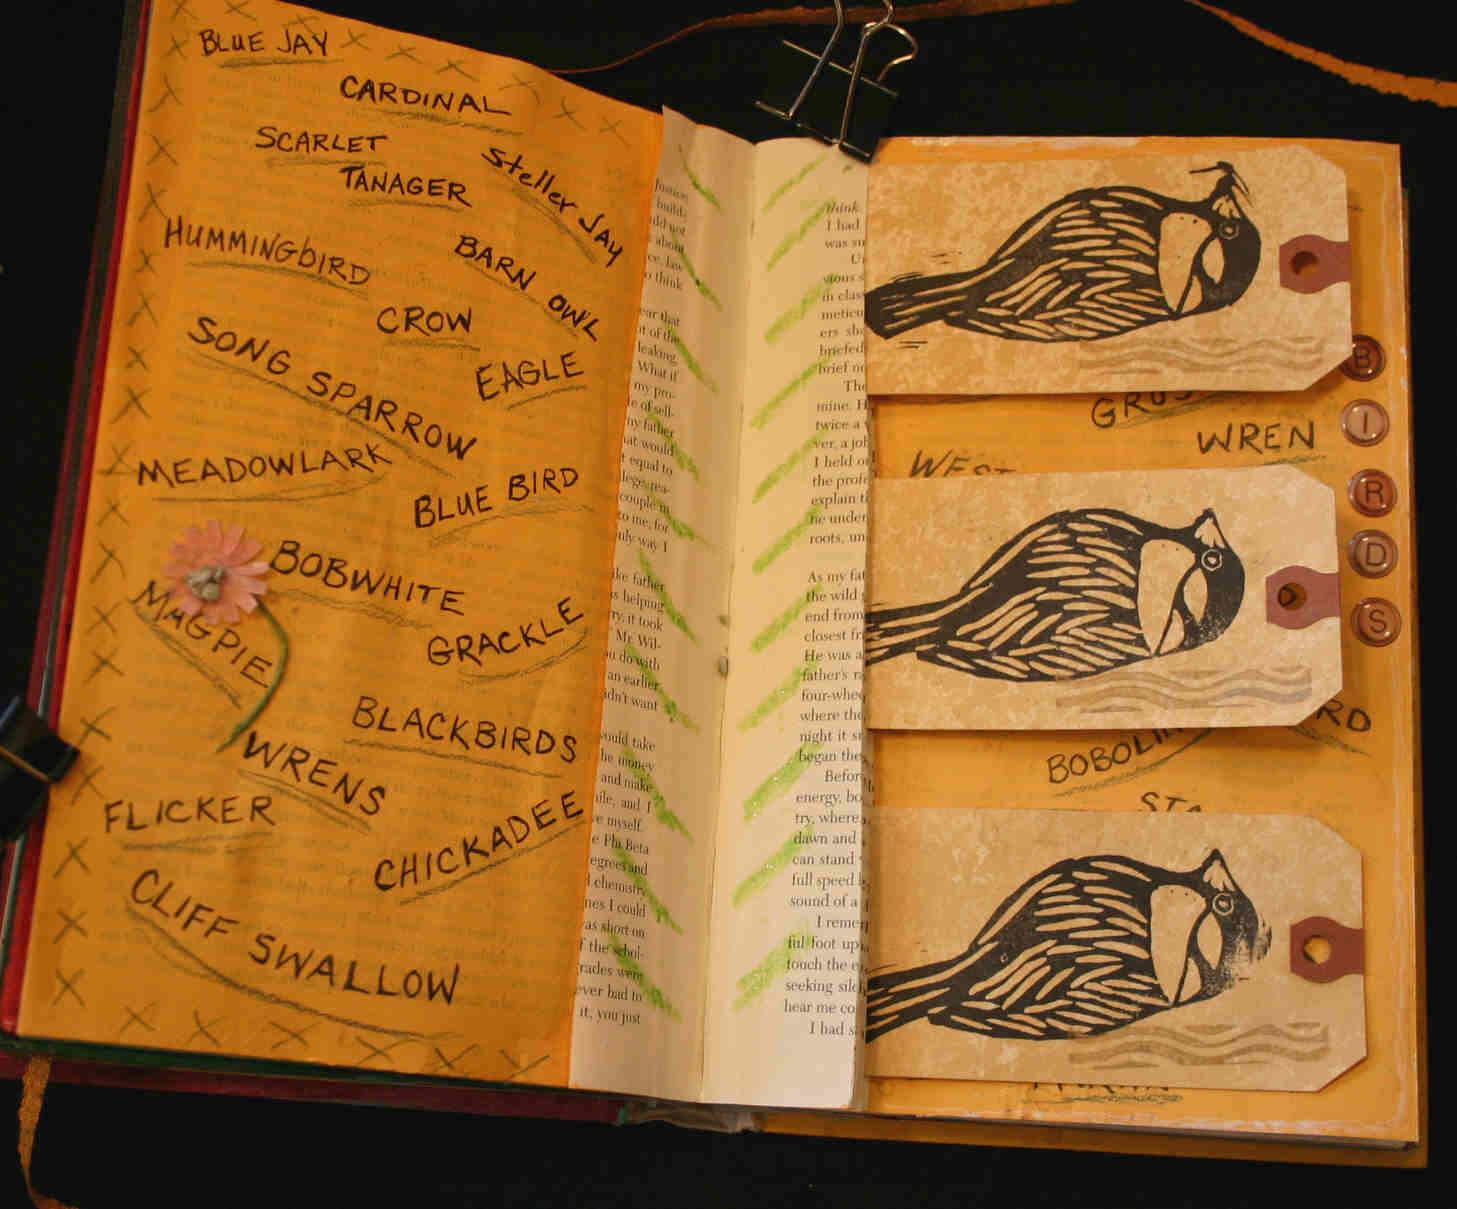 BLUE JAY
CARDINAL
SCARLET
TANAGER
Steller JAY
HUMMINGbIRD
BARN OWL
CROW
SONG SPARROW
EAGLE
MEADOWLARK
BLUE BIRD
BOBWHITE
MAGPIE
GRACKLE
BLACKBIRDS
WRENS
FLICKER
CHICKADEE
CLIFF SWALLOW
Justice
build-
uld not
s about
ce, law
o think
ear that
it of the
leaking.
What if
my pro-
le of sell-
my father
hat would
t equal to
lege; rea-
couple in
to me, for
uly way I
ike father
s helping
ry, it took
Mr. Wil-
u do with
an earlier
idn't want
would take
he money
and make
hile, and I
ve myself.
e Phi Beta
egrees and
d chemistry
nes I could
as short on
f the schol-
rades were
ever had to
it, you just
think.
I had
was su
U
vious s
in clas
meticu
ers sh
briefed
brief no
The
mine. H
twice a
ver, a jol
I held o
the profe
explain t
he under
roots, un
As my fat
the wild
end from
closest fr
He was a
father's r
four-whee
where the
night it s
began the
Befor
energy, bo
try, where
dawn and
can stand
full speed
sound of a
I reme
ful foot up
touch the e
seeking sile
hear me co
I had s
GROS
WREN
WEST
B
I
R
D
S
RD
BOBOLIN
STA